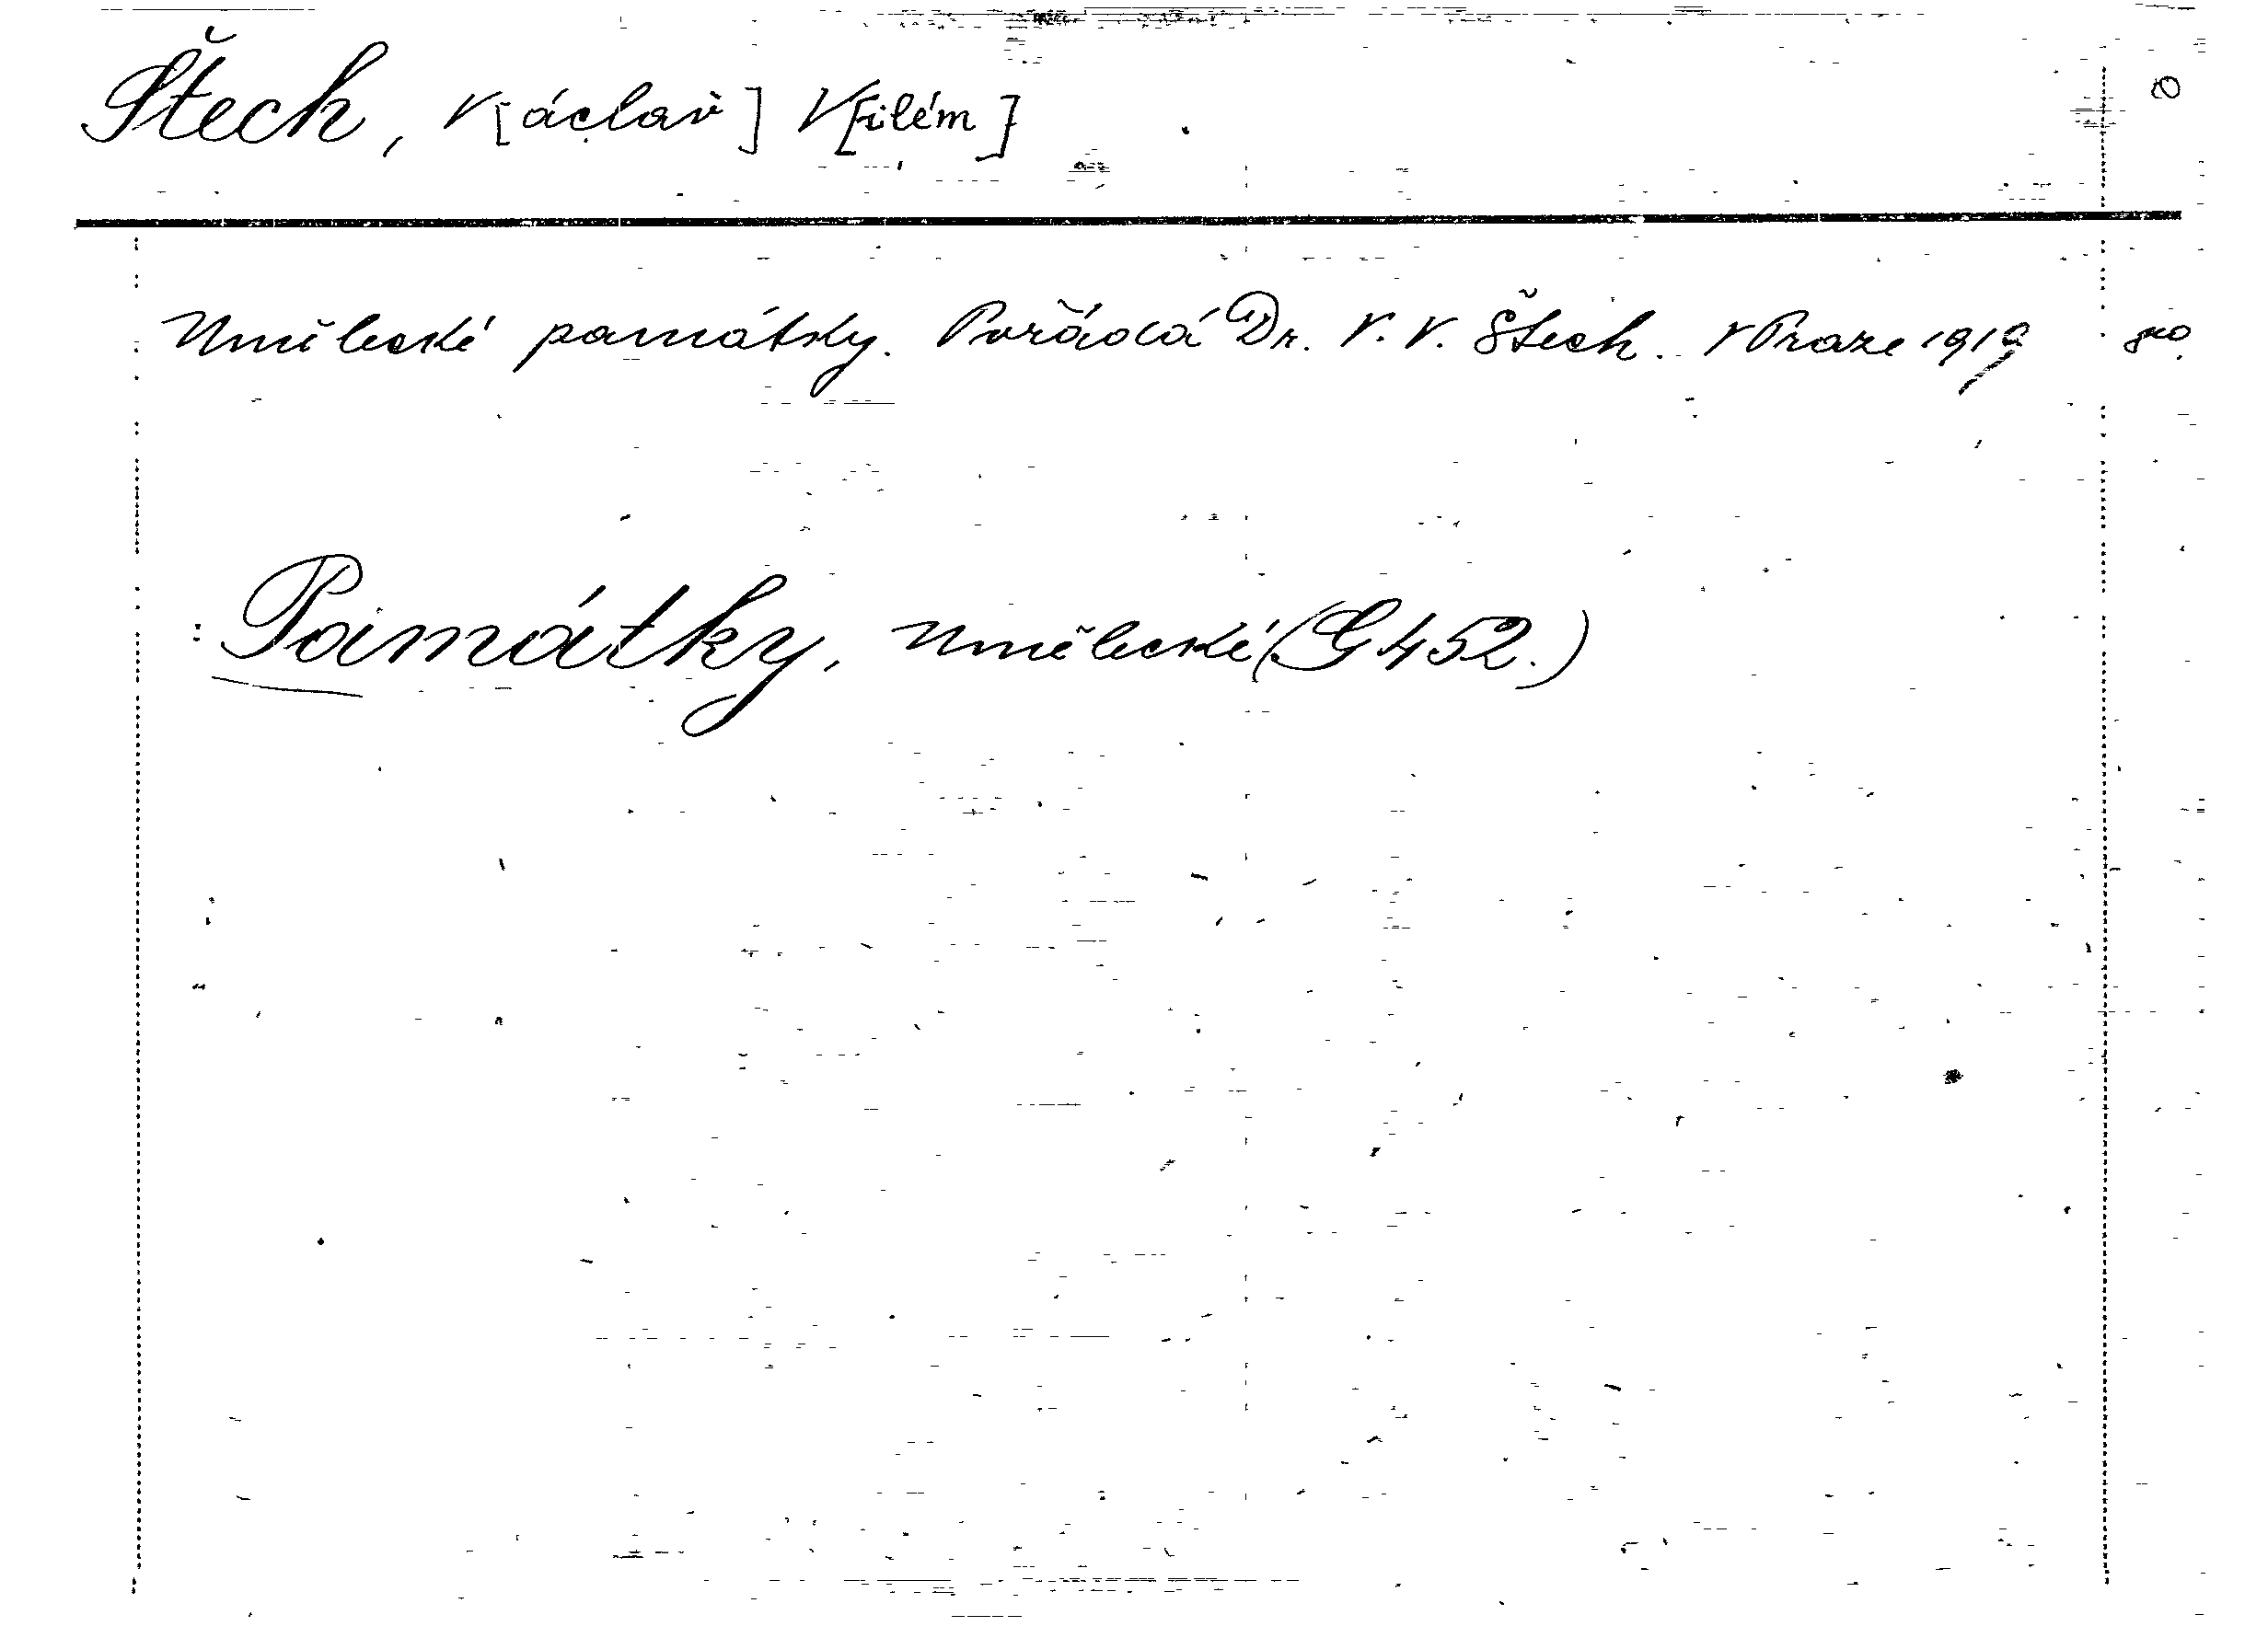 Štech, V[áclav] V[ilém]
Umělecké památky. Pořádá Dr. V. V. Štech. V Praze 1919 8º.
: Památky, umělecké (G 452.)